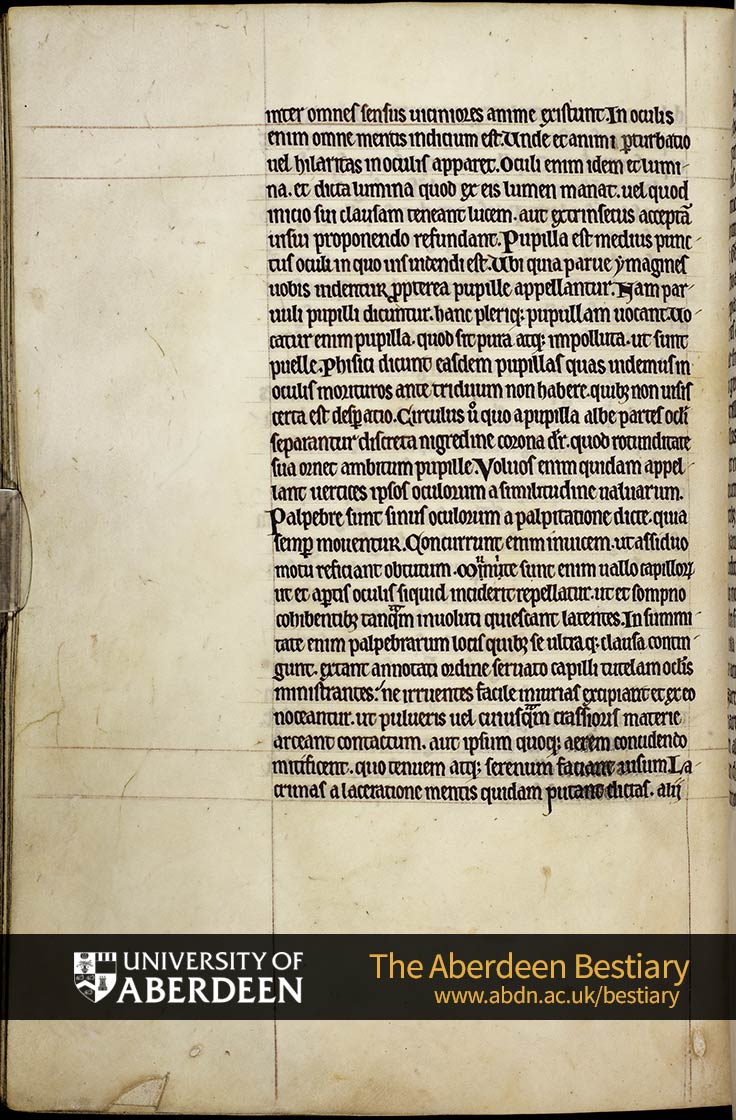 inter omnes sensus viciniores anime existunt. In oculis
enim omne mentis indicium est. Unde et animi ꝑturbatio
uel hilaritas in oculis apparet. Oculi enim idem et lumi-
na. et dicta lumina quod ex eis lumen manat. uel quod
inicio sui clausam teneant lucem. aut extrinsecus acceptā
uisui proponendo refundant. Pupilla est medius punc-
tus oculi in quo uis uidendi est. Ubi quia parue ymagines
uobis uidentur ꝓpterea pupille appellantur. Nam par-
uuli pupilli dicuntur. hanc pleriqꝫ pupullam uocant. Uo-
catur enim pupilla. quod sit pura atqꝫ impolluta. ut sunt
puelle. Phisici dicunt easdem pupillas quas uidemus in
oculis morituros ante triduum non habere. quibꝫ non uisis
certa est desꝑatio. Circulus u̾o quo a pupilla albe partes oc̄li
separantur discreta nigredine corona dr̄. quod rotunditate
sua ornet ambitum pupille. Voluos enim quidam appel-
lant uertices ipsos oculorum a similitudine ualuarum.
Palpebre sunt sinus oculorum a palpitatione dicte. quia
semꝑ mouentur. Concurrunt enim inuicem. ut assiduo
motu reficiant obtutum. sunt enim uallo capilloꝝ
ut et aꝑtis oculis siquid inciderit repellatur. ut et sompno
cohibentibꝫ tanqͣm inuoluti quiescant latentes. In summi-
tate enim palpebrarum locis quibꝫ se utraqꝫ clausa contin-
gunt. extant annotati ordine seruato capilli tutelam oclīs
ministrantes: ne irruentes facile iniurias excipiant et ex eo
noceantur. ut pulueris uel cuiusqͣm crassioris materie
arceant contactum. aut ipsum quoqꝫ aerem concidendo
mitificent. quo tenuem atqꝫ serenum faciant uisum. La-
crimas a laceratione mentis quidam putant dictas. alij
UNIVERSITY OF
ABERDEEN
The Aberdeen Bestiary
www.abdn.ac.uk/bestiary